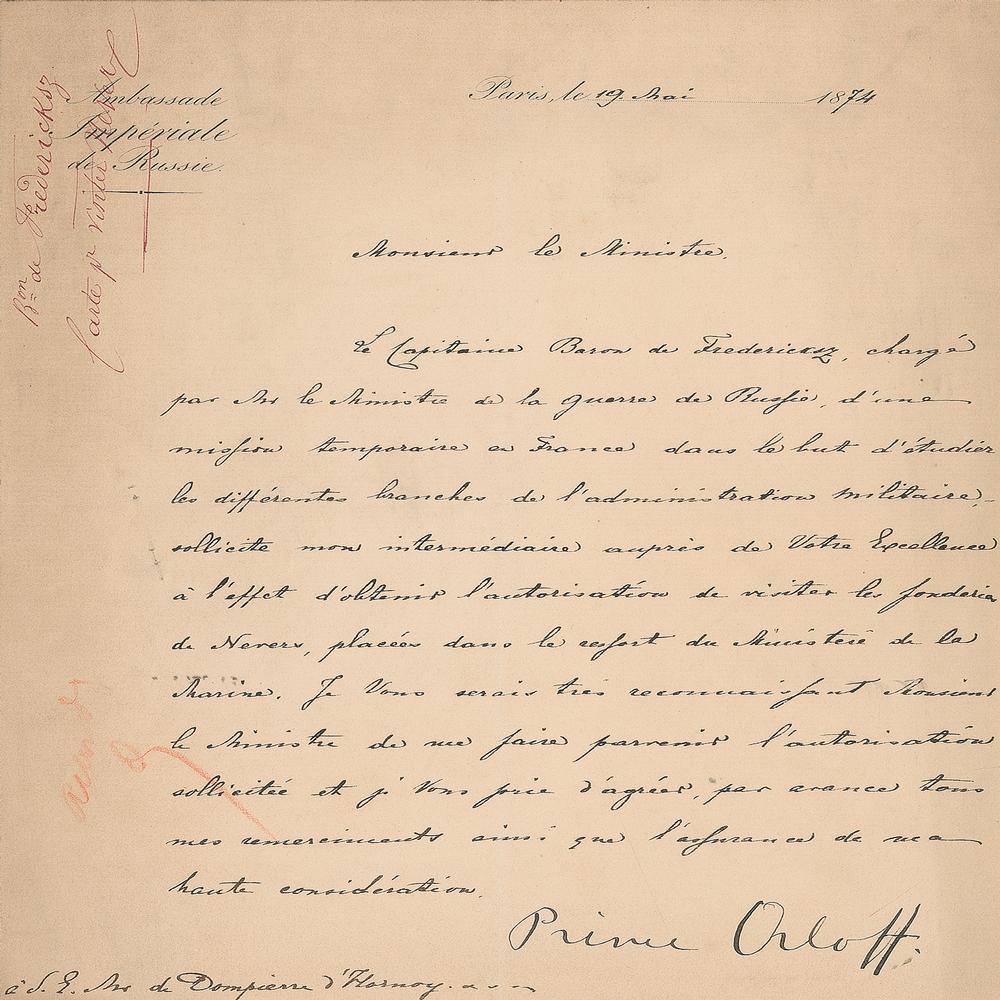 Ambassade
Impériale
de Russie.
Paris, le 19. Mai 1874
Bon de Fredericksz
Carte pr visiter
Monsieur le Ministre.
Le Capitaine Baron de Fredericksz, chargé
par Mr le Ministre de la guerre de Russie, d'une
mission temporaire en France dans le but d'étudier
les différentes branches de l'administration militaire,
sollicite mon intermédiaire auprès de Votre Excellence
à l'effet d'obtenir l'autorisation de visiter les fonderies
de Nevers, placées dans le ressort du Ministère de la
Marine. Je Vous serais très reconnaissant Monsieur
le Ministre de me faire parvenir l'autorisation
sollicitée et je Vous prie d'agréer, par avance tous
mes remerciments ainsi que l'assurance de ma
haute considération.
Prince Orloff.
à S. E. Mr de Dompierre d'Hornoy.